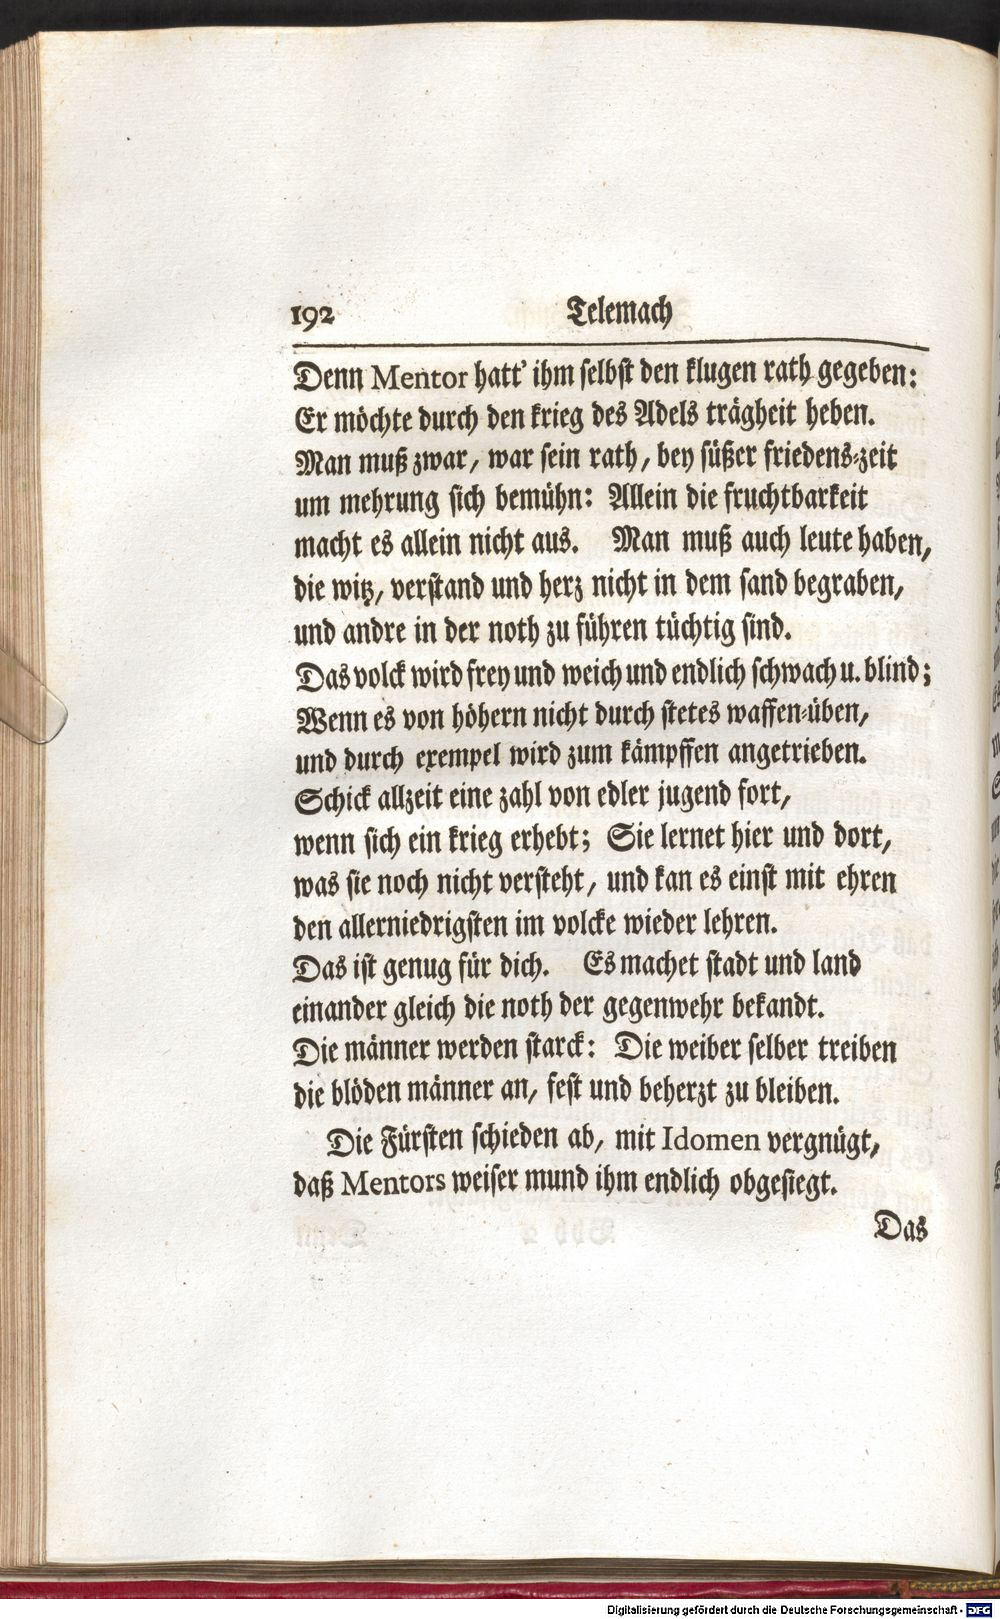 192 Telemach
Denn Mentor hatt' ihm selbst den klugen rath gegeben:
Er möchte durch den krieg des Adels trägheit heben.
Man muß zwar, war sein rath, bey süßer friedens-zeit
um mehrung sich bemühn: Allein die fruchtbarkeit
macht es allein nicht aus. Man muß auch leute haben,
die witz, verstand und herz nicht in dem sand begraben,
und andre in der noth zu führen tüchtig sind.
Das volck wird frey und weich und endlich schwach u. blind;
Wenn es von höhern nicht durch stetes waffen-üben,
und durch exempel wird zum kämpffen angetrieben.
Schick allzeit eine zahl von edler jugend fort,
wenn sich ein krieg erhebt; Sie lernet hier und dort,
was sie noch nicht versteht, und kan es einst mit ehren
den allerniedrigsten im volcke wieder lehren.
Das ist genug für dich. Es machet stadt und land
einander gleich die noth der gegenwehr bekandt.
Die männer werden starck: Die weiber selber treiben
die blöden männer an, fest und beherzt zu bleiben.
Die Fürsten schieden ab, mit Idomen vergnügt,
daß Mentors weiser mund ihm endlich obgesiegt.
Das
Digitalisierung gefördert durch die Deutsche Forschungsgemeinschaft - DFG